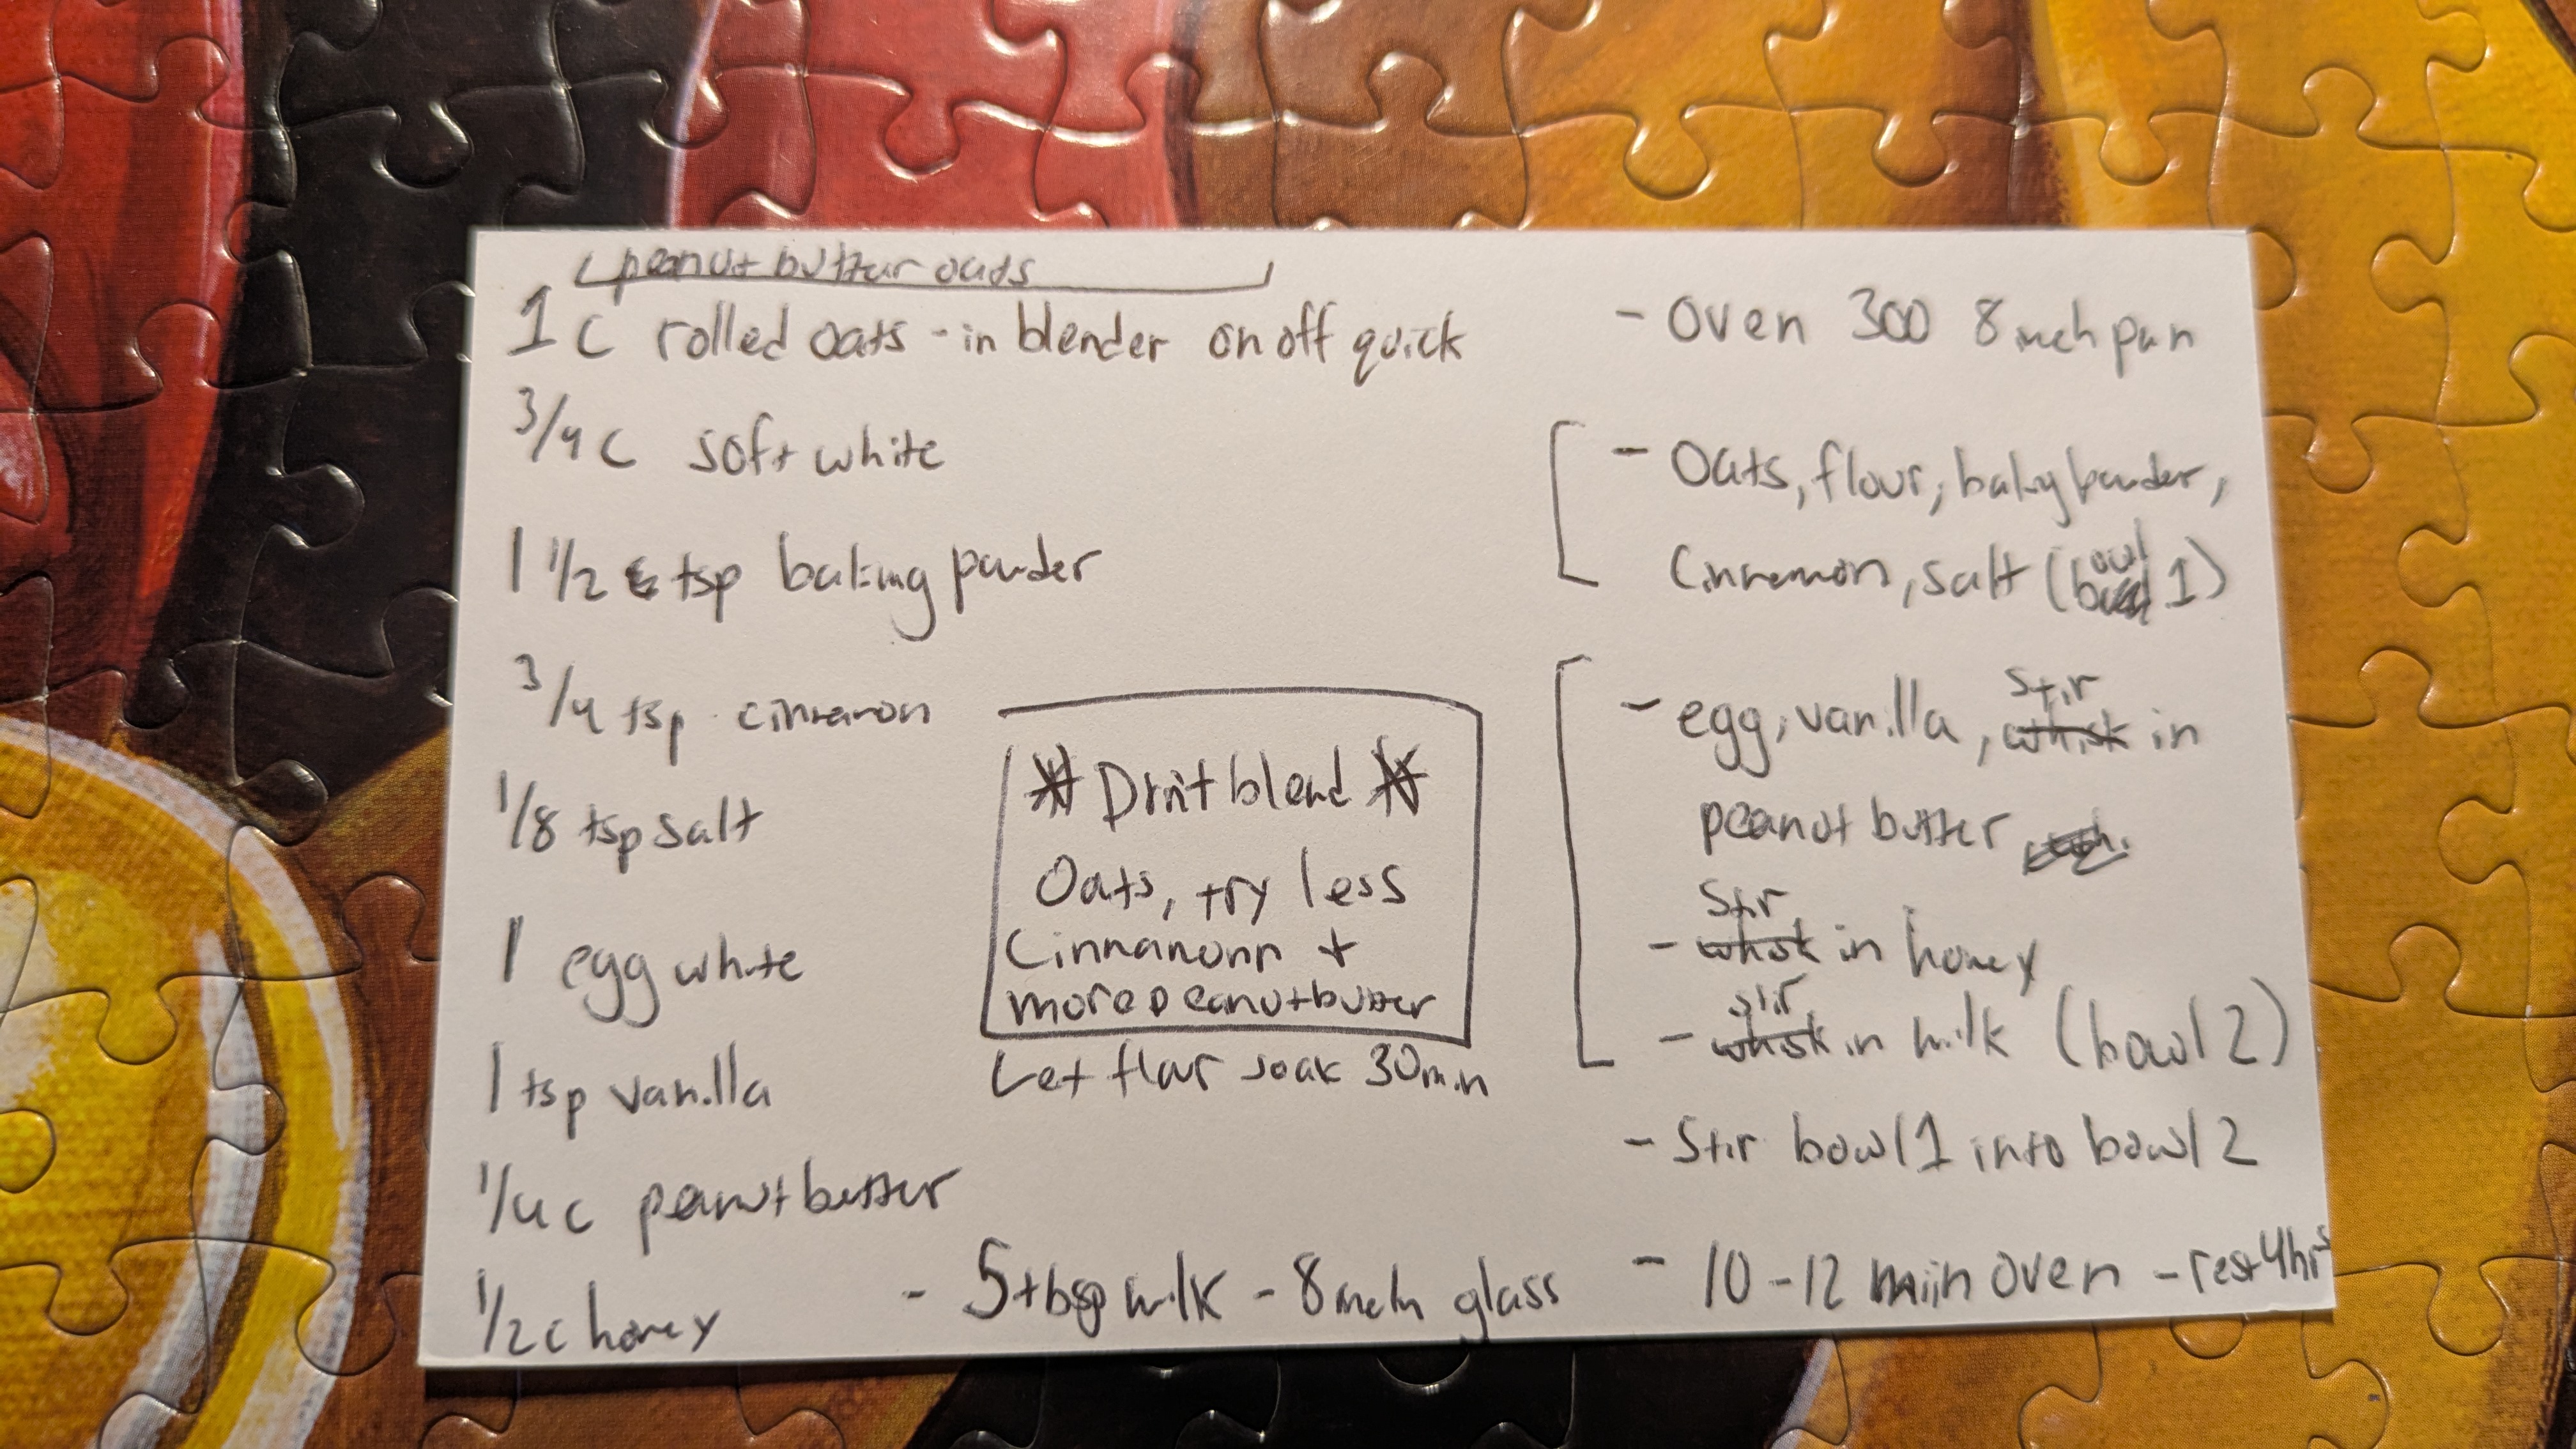 peanut butter oats
1 C rolled oats - in blender on off quick
3/4 C soft white
1 1/2 tsp baking powder
3/4 tsp cinnamon
1/8 tsp salt
1 egg white
1 tsp vanilla
1/4 c peanut butter
1/2 c honey
- 5 tbsp milk - 8 inch glass
* Don't blend *
Oats, try less
Cinnamonn +
more peanut butter
Let flour soak 30 min
- Oven 300 8 inch pan
- Oats, flour, baking powder,
Cinnamon, salt (bowl 1)
- egg, vanilla, whisk stir in
peanut butter
- whisk stir in honey
- whisk stir in milk (bowl 2)
- Stir bowl 1 into bowl 2
- 10-12 min oven - rest 4hrs